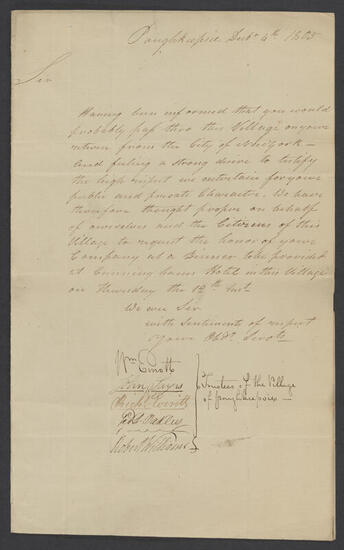 Poughkeepsie Decbr 4th 1805
Sir
Having been informed that you would
probably pass thro this Village on your
return from the City of New York —
And feeling a strong desire to testify
the high respect we entertain for your
public and private Character. We have
therefore thought proper on behalf
of ourselves and the Citizens of this
Village to request the honor of your
Company at a Dinner to be provided
at Cunninghams Hotel in this Village
on Thursday the 12th Inst
We are Sir
with Sentiments of respect
Your Obt. Servts
Wm Emott
Trustees of the Village
of Poughkeepsie —
Robert Williams